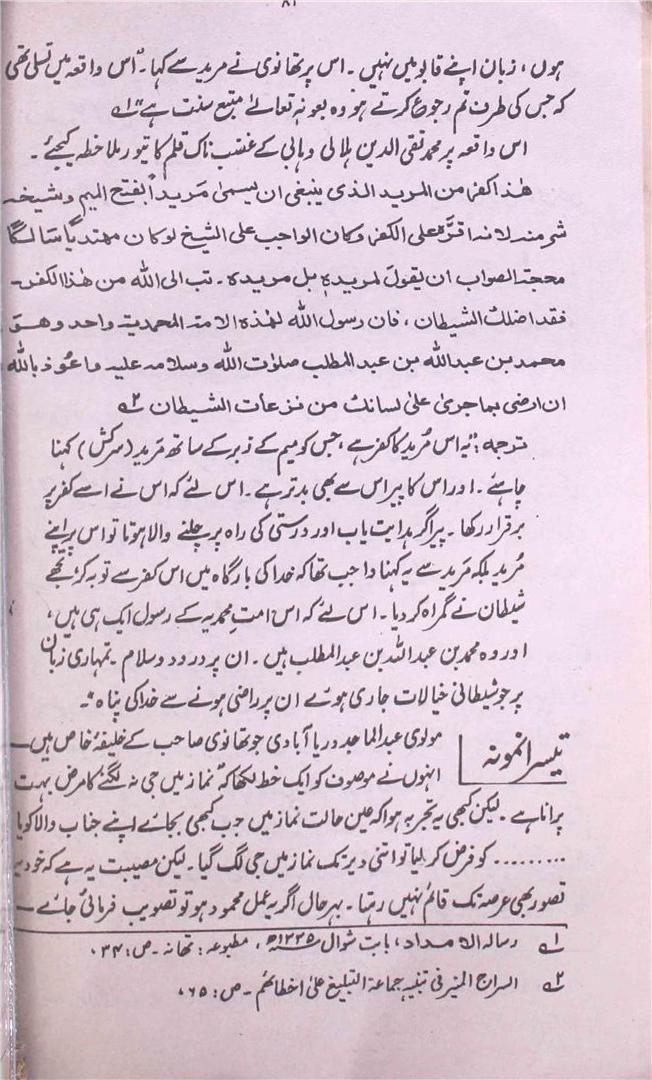 ۸۱
ہوں، زبان اپنے قابو میں نہیں۔ اس پر تھانوی نے مرید سے کہا۔ "اس واقعہ میں تسلی تھی
کہ جس کی طرف تم رجوع کرتے ہو وہ بعونہ تعالےٰ متبع سنت ہے" ۱؎
اس واقعہ پر محمد تقی الدین ہلالی وہابی کے غضب ناک قلم کا تیور ملاحظہ کیجئے۔
ھٰذا کفر من المرید الذی ینبغی ان یسمیٰ مَرِیداً بفتح المیم وشیخہ
شر منہ لانہ اقرّہ علی الکفر وکان الواجب علی الشیخ لو کان مھتدیاً سالکا
محجۃ الصواب ان یقول لمریدہٖ بل مریدہ۔ تب الی اللہ من ھٰذا الکفر۔
فقد اضلک الشیطان، فان رسول اللہ لھٰذہ الامۃ المحمدیۃ واحد وھو
محمد بن عبد اللہ بن عبد المطلب صلوٰت اللہ وسلامہ علیہ واعوذ باللہ
ان ارضی بما جریٰ علیٰ لسانک من نزغات الشیطان ۲؎
ترجمہ: "یہ اس مُرید کا کفر ہے، جس کو میم کے زبر کے ساتھ مَرید (سرکش) کہنا
چاہئے۔ اور اس کا پیر اس سے بھی بدتر ہے۔ اس لئے کہ اس نے اسے کفر پر
برقرار رکھا۔ پیر اگر ہدایت یاب اور درستی کی راہ پر چلنے والا ہوتا تو اس پر اپنے
مُرید بلکہ مَرید سے یہ کہنا واجب تھا کہ خدا کی بارگاہ میں اس کفر سے توبہ کر، تجھے
شیطان نے گمراہ کر دیا۔ اس لئے کہ اس امتِ محمدیہ کے رسول ایک ہی ہیں،
اور وہ محمد بن عبد اللہ بن عبد المطلب ہیں۔ ان پر درود وسلام۔ تمہاری زبان
پر جو شیطانی خیالات جاری ہوئے ان پر راضی ہونے سے خدا کی پناہ"۔
تیسرا نمونہ
مولوی عبد الماجد دریا آبادی جو تھانوی صاحب کے خلیفۂ خاص ہیں۔
انہوں نے موصوف کو ایک خط لکھا کہ "نماز میں جی نہ لگنے کا مرض بہت
پرانا ہے۔ لیکن کبھی یہ تجربہ ہوا کہ عین حالت نماز میں جب کبھی بجائے اپنے جناب والا کو یا
......... کو فرض کر لیا تو اتنی دیر تک نماز میں جی لگ گیا۔ لیکن مصیبت یہ ہے کہ خود یہ
تصور بھی عرصہ تک قائم نہیں رہتا۔ بہرحال اگر یہ عمل محمود ہو تو تصویب فرمائی جائے۔
۱؎ رسالہ الامداد، بابت شوال ۱۳۳۵ھ، مطبوعہ: تھانہ۔ ص: ۳۴۔
۲؎ السراج المنیر فی تنبیہ جماعۃ التبلیغ علیٰ اخطائھم۔ ص: ۶۵۔